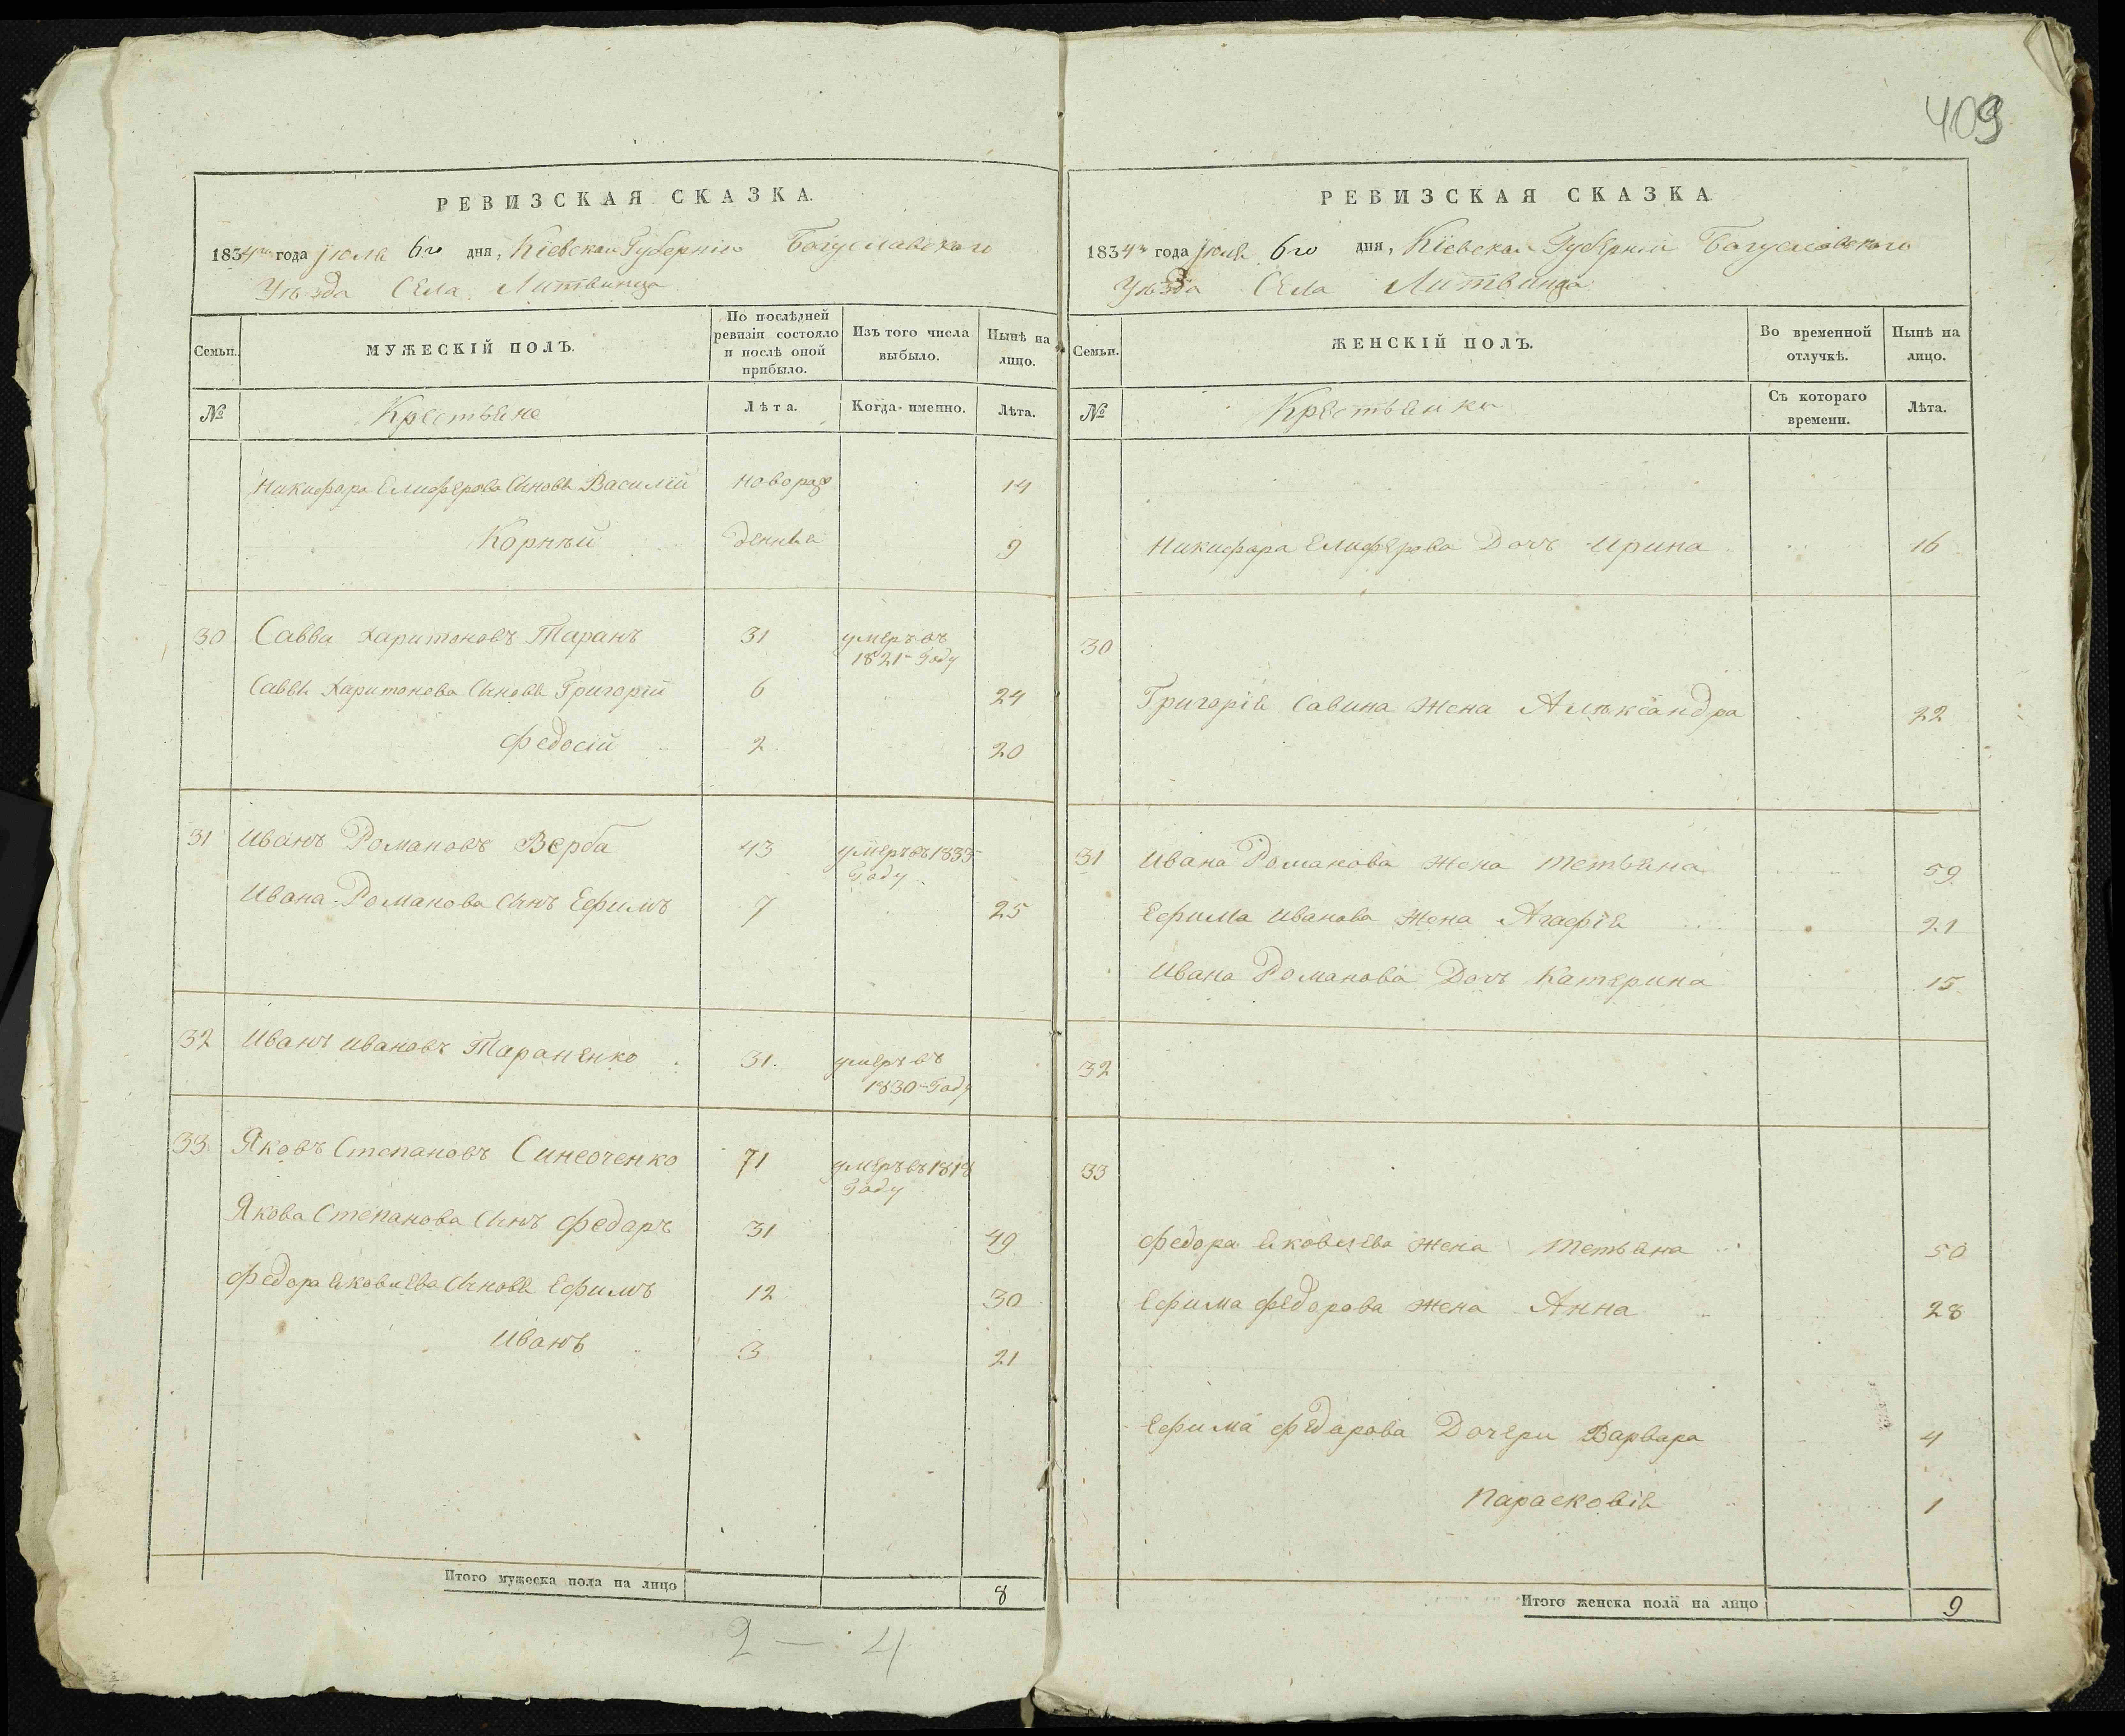 409
РЕВИЗСКАЯ СКАЗКА.
1834го года Июля 6го дня, Кіевской Губерніи Богуславского
Уѣзда Села Литвинца
Семьи.
МУЖЕСКІЙ ПОЛЪ.
По послѣдней ревизіи состояло и послѣ оной прибыло.
Изъ того числа выбыло.
Нынѣ на лицо.
№
Крестьяне
Лѣта.
Когда именно.
Лѣта.
Никифора Елиферова Сыновя Василій новораж 14
Корнѣй денныя 9
30 Савва Харитоновъ Таранъ 31 умеръ въ
1821 Году
Саввы Харитонова Сыновя Григорій 6 24
Федосій 2 20
31 Иванъ Романовъ Верба 43 умеръ въ 1833
Году
Ивана Романова Сынъ Ефимъ 7 25
32 Иванъ Ивановъ Тараненко 31. умеръ въ
1830 Году
33 Яковъ Степановъ Синеоченко 71 умеръ въ 1818
Году
Якова Степанова Сынъ Федаръ 31 49
Федора Яковлева Сыновя Ефимъ 12 30
Иванъ 3 21
Итого мужеска пола на лицо 8
2 — 4
РЕВИЗСКАЯ СКАЗКА
1834го года Июля 6го дня, Кіевской Губерніи Богуславского
Уѣзда Села Литвинца
Семьи.
ЖЕНСКІЙ ПОЛЪ.
Во временной отлучкѣ.
Нынѣ на лицо.
№
Крестьянки
Съ котораго времени.
Лѣта.
Никифора Елиферова Дочь Ирина 16
30
Григорія Савина Жена Алѣксандра 22
31 Ивана Романова Жена Тетьяна 59
Ефима Иванова Жена Агафія 21
Ивана Романова Дочь Катерина 15
32
33
Федора Яковлева Жена Тетьяна 50
Ефима Федорова Жена Анна 28
Ефима Федарова Дочери Варвара 4
Парасковія 1
Итого женска пола на лицо 9